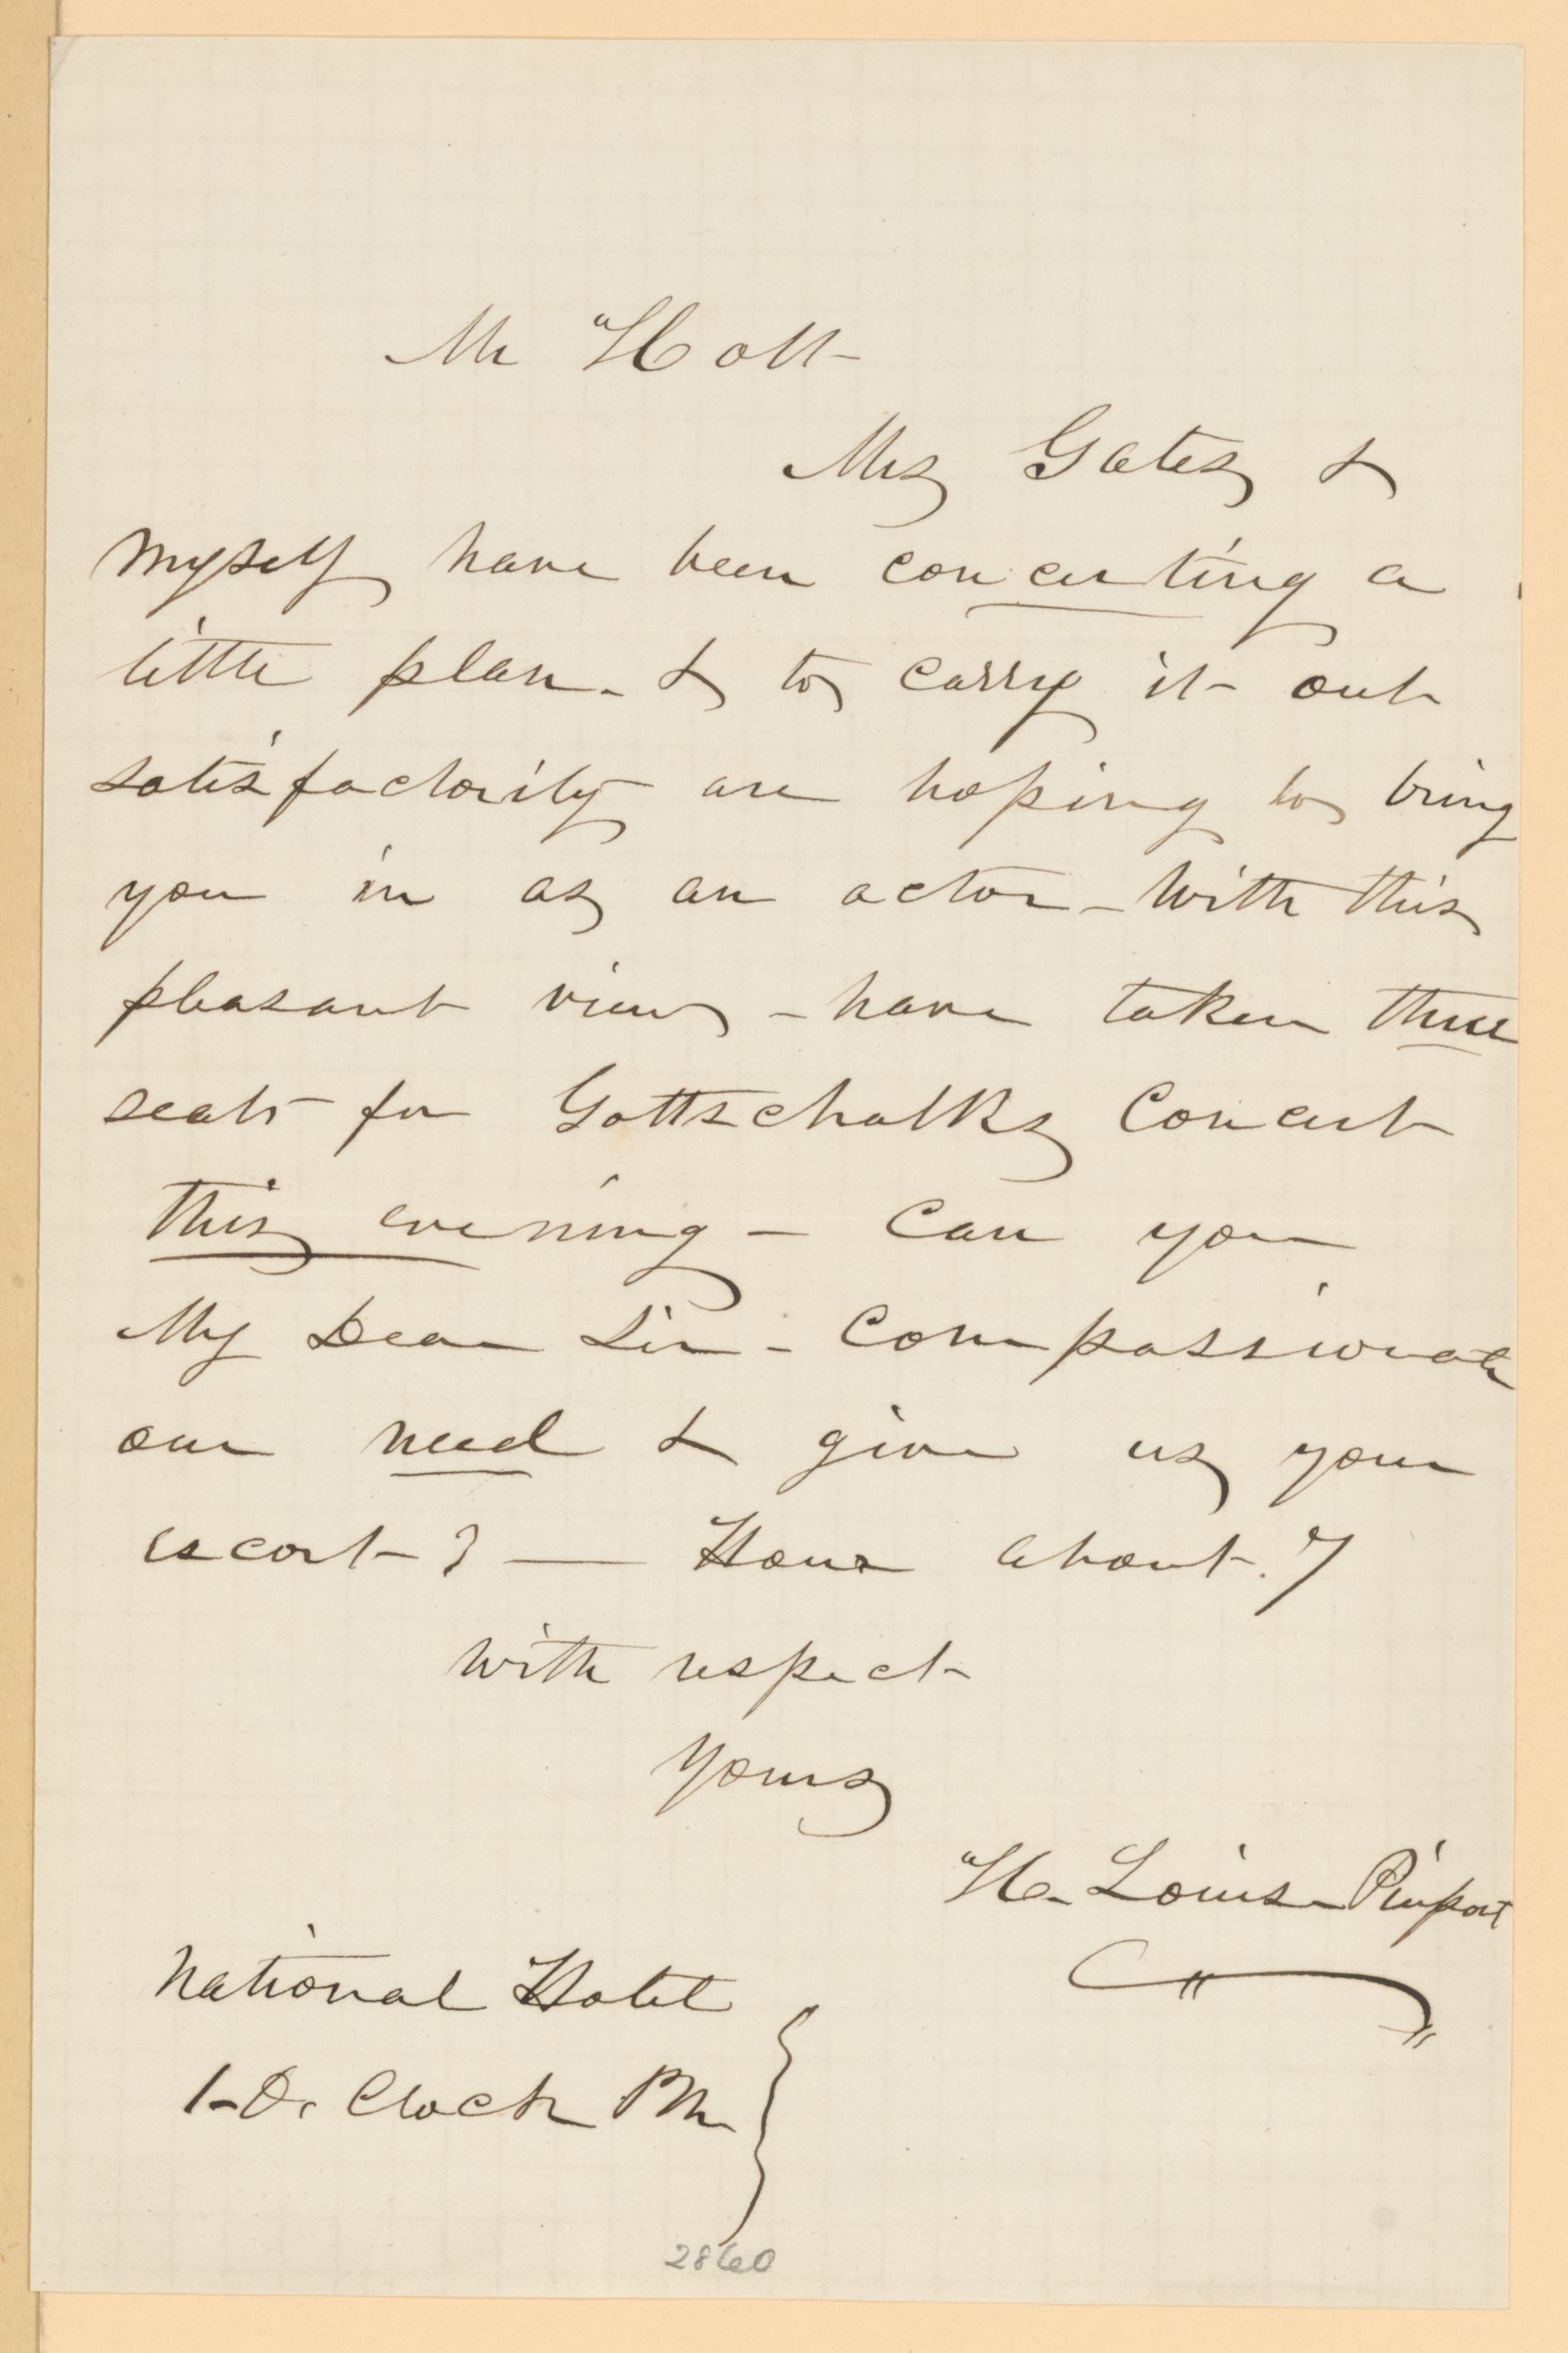 Mr Holt
Mrs Gates &
myself have been concerting a
little plan - & to carry it out
satisfactorily are hoping to bring
you in as an actor - With this
pleasant view - have taken three
seats for Gottschalks Concert
this evening - Can you
My Dear Sir - Compassionate
our need & give us your
escort? — Hour about. 7
With respect
Yours
H. Louise Pinport
National Hotel
1-O, Clock PM
2860